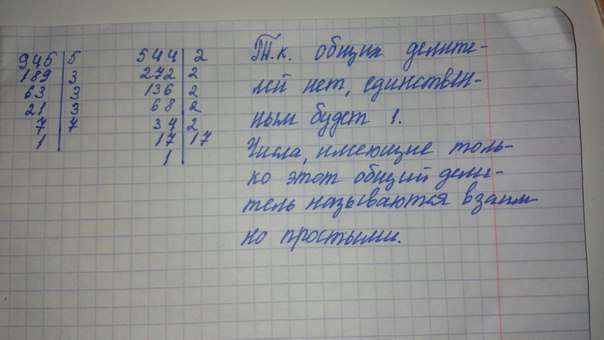 945 | 5
189 | 3
63 | 3
21 | 3
7 | 7
1 |
544 | 2
272 | 2
136 | 2
68 | 2
34 | 2
17 | 17
1 |
Т.к. общих делите-
лей нет, единствен-
ным будет 1.
Числа, имеющие толь-
ко этот общий дели-
тель называются взаим-
но простыми.